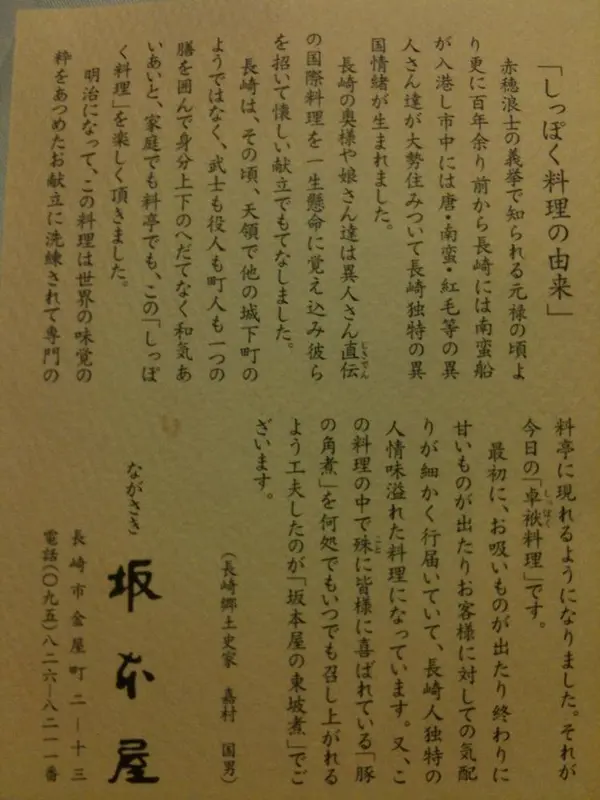 「しっぽく料理の由来」
赤穂浪士の義挙で知られる元禄の頃よ
り更に百年余り前から長崎には南蛮船
が入港し市中には唐・南蛮・紅毛等の異
人さん達が大勢住みついて長崎独特の異
国情緒が生まれました。
長崎の奥様や娘さん達は異人さん直伝
じきでん
の国際料理を一生懸命に覚え込み彼ら
を招いて懐しい献立でもてなしました。
長崎は、その頃、天領で他の城下町の
ようではなく、武士も役人も町人も一つの
膳を囲んで身分上下のへだてなく和気あ
いあいと、家庭でも料亭でも、この「しっぽ
く料理」を楽しく頂きました。
明治になって、この料理は世界の味覚の
粋をあつめたお献立に洗練されて専門の
料亭に現れるようになりました。それが
今日の「卓袱料理」です。
しっぽく
最初に、お吸いものが出たり終わりに
甘いものが出たりお客様に対しての気配
りが細かく行届いていて、長崎人独特の
人情味溢れた料理になっています。又、こ
の料理の中で殊に皆様に喜ばれている「豚
こと
の角煮」を何処でもいつでも召し上がれる
よう工夫したのが「坂本屋の東坡煮」でご
ざいます。
(長崎郷土史家 嘉村 国男)
ながさき
坂本屋
長崎市金屋町二ー十三
電話(〇九五)八二六ー八二一一番